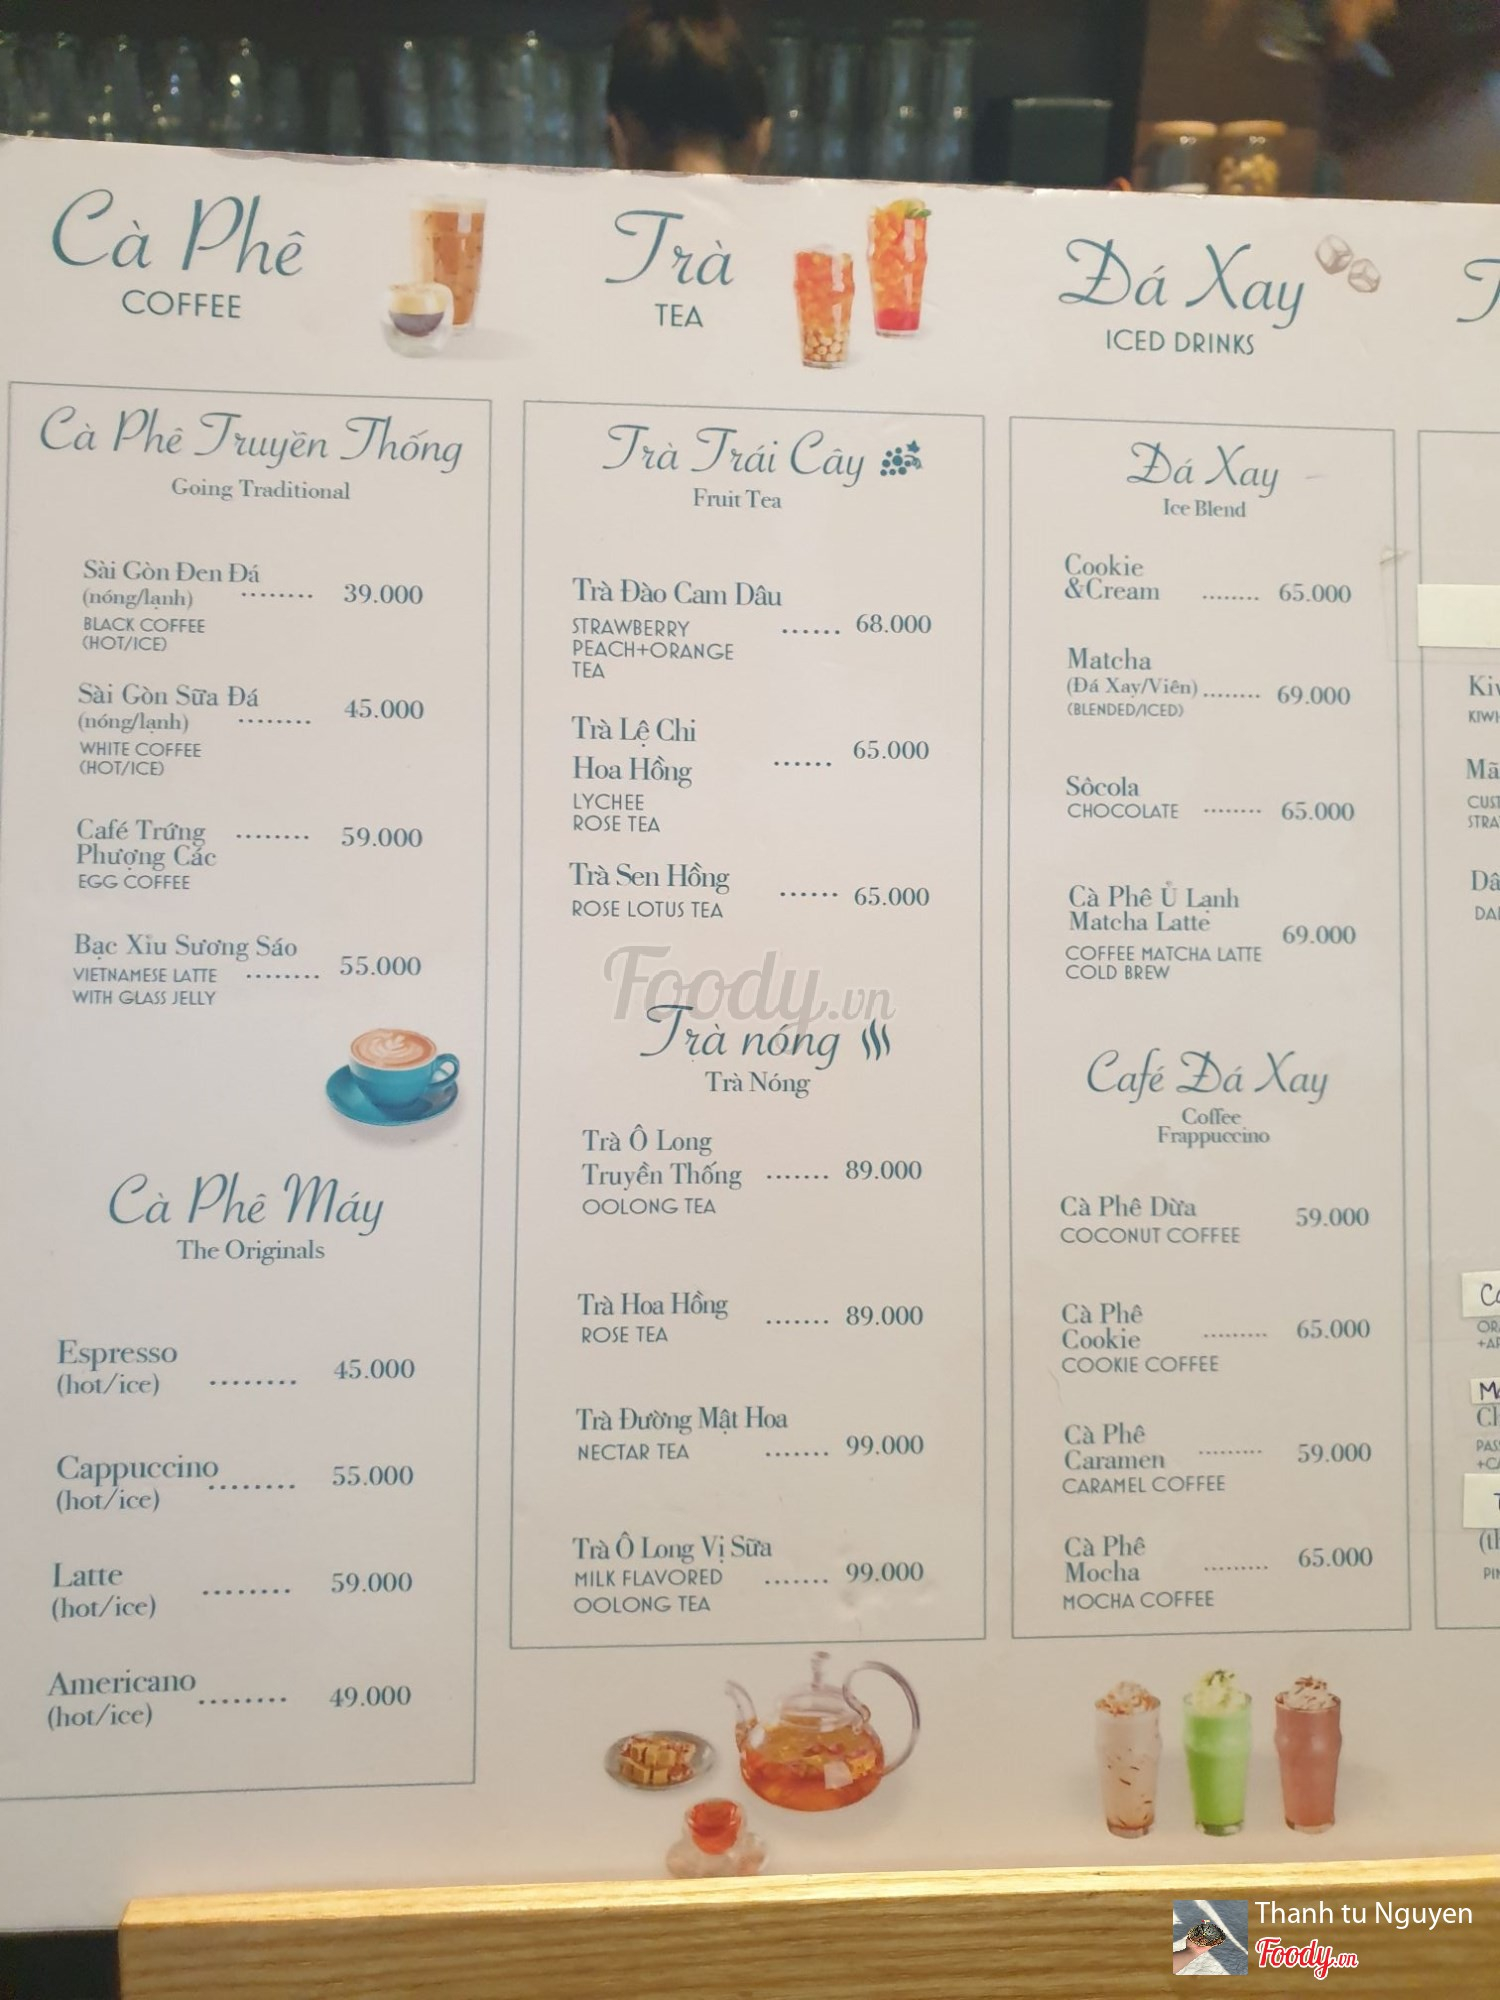 Cà Phê
COFFEE
Cà Phê Truyền Thống
Going Traditional
Sài Gòn Đen Đá
(nóng/lạnh) ........ 39.000
BLACK COFFEE
(HOT/ICE)
Sài Gòn Sữa Đá
(nóng/lạnh) ........ 45.000
WHITE COFFEE
(HOT/ICE)
Café Trứng ........ 59.000
Phượng Các
EGG COFFEE
Bạc Xỉu Sương Sáo
VIETNAMESE LATTE ........ 55.000
WITH GLASS JELLY
Cà Phê Máy
The Originals
Espresso
(hot/ice) ........ 45.000
Cappuccino ........ 55.000
(hot/ice)
Latte ........ 59.000
(hot/ice)
Americano ........ 49.000
(hot/ice)
Trà
TEA
Trà Trái Cây
Fruit Tea
Trà Đào Cam Dâu
STRAWBERRY ...... 68.000
PEACH+ORANGE
TEA
Trà Lệ Chi
Hoa Hồng ...... 65.000
LYCHEE
ROSE TEA
Trà Sen Hồng ...... 65.000
ROSE LOTUS TEA
Foody.vn
Trà nóng
Trà Nóng
Trà Ô Long
Truyền Thống ....... 89.000
OOLONG TEA
Trà Hoa Hồng ....... 89.000
ROSE TEA
Trà Đường Mật Hoa
NECTAR TEA ....... 99.000
Trà Ô Long Vị Sữa
MILK FLAVORED ....... 99.000
OOLONG TEA
Đá Xay
ICED DRINKS
Đá Xay
Ice Blend
Cookie
&Cream ........ 65.000
Matcha
(Đá Xay/Viên) ........ 69.000
(BLENDED/ICED)
Sôcola
CHOCOLATE ........ 65.000
Cà Phê Ủ Lạnh
Matcha Latte 69.000
COFFEE MATCHA LATTE
COLD BREW
Café Đá Xay
Coffee
Frappuccino
Cà Phê Dừa 59.000
COCONUT COFFEE
Cà Phê
Cookie ......... 65.000
COOKIE COFFEE
Cà Phê
Caramen ......... 59.000
CARAMEL COFFEE
Cà Phê
Mocha ......... 65.000
MOCHA COFFEE
Thanh tu Nguyen
Foody.vn